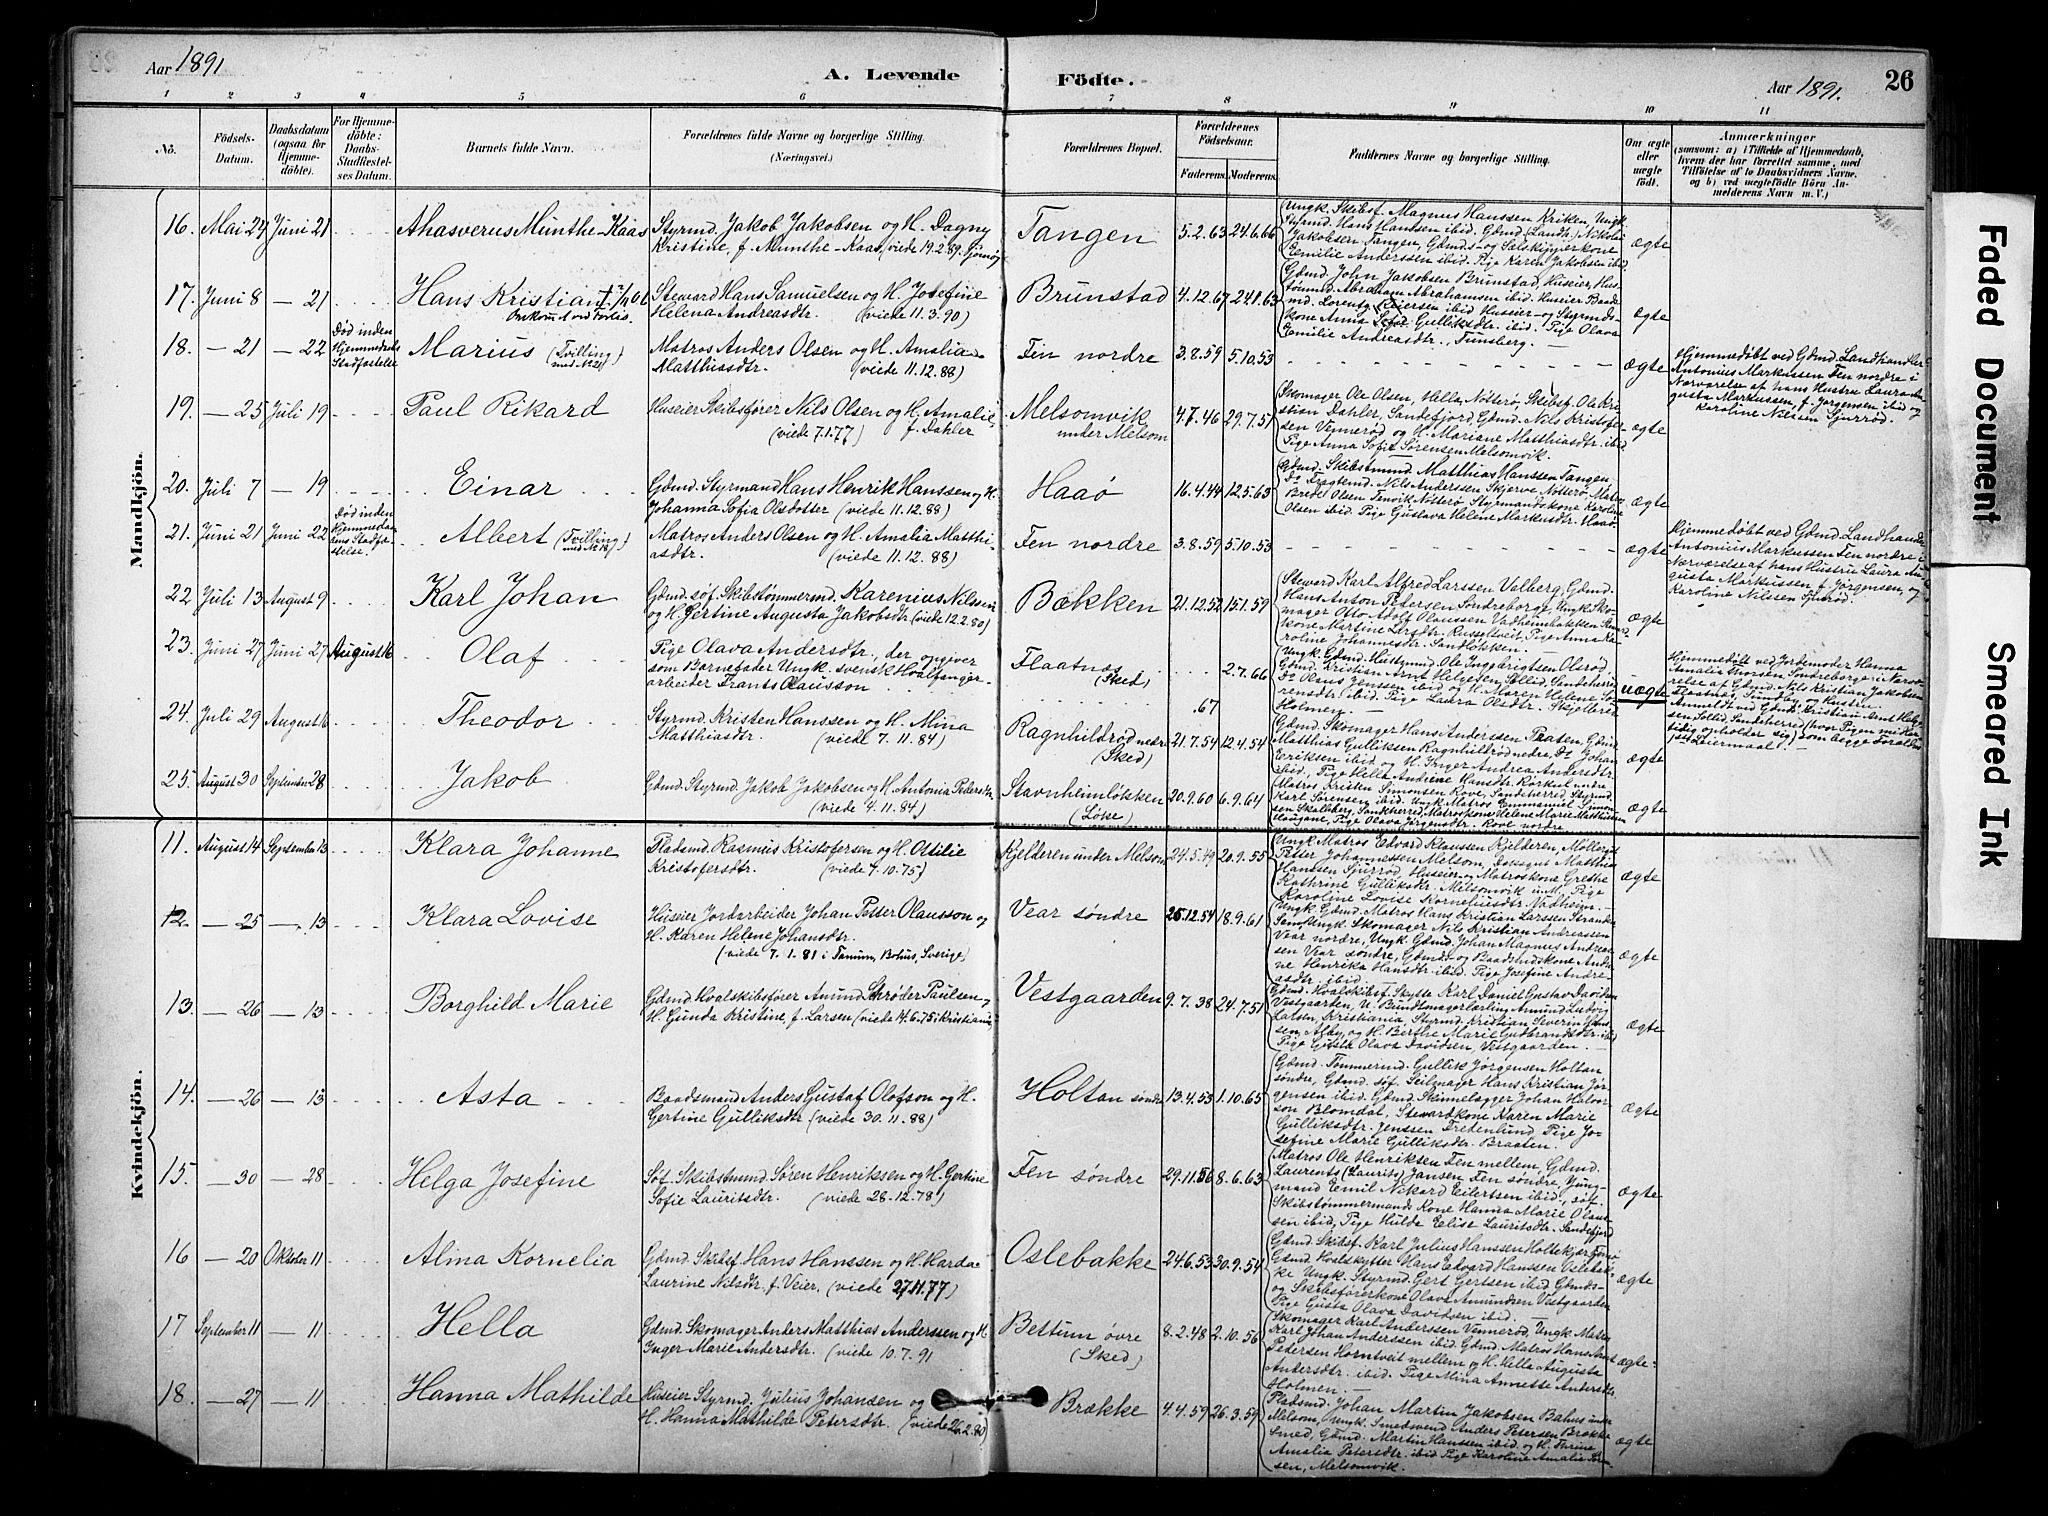 Aar 1891
A. Levende
Födte.
Aar 1891.
26
1 2 3 4 5 6 7 8 9 10 11
No.
Födsels-
Datum.
Daabsdatum
(ogsaa for
Hjemme-
döbte).
For Hjemme-
döbte:
Daabs-
Stadfæstel-
ses Datum.
Barnets fulde Navn.
Forældrenes fulde Navne og borgerlige Stilling.
(Næringsvei.)
Forældrenes Bopæl.
Forældrenes
Födselsaar.
Faderens. Moderens.
Faddernes Navne og borgerlige Stilling.
Om ægte
eller
uægte
födt.
Anmærkninger
(saasom: a) i Tilfælde af Hjemmedaab,
hvem der har forrettet samme, med
Tilföielse af to Daabsvidners Navne,
og b) ved uægtefödte Börn An-
melderens Navn m. V.)
Mandkjön.
16. Mai 24 Juni 21 Ahasverus Munthe-Kaas
Styrmd. Jakob Jakobsen og H. Dagny
Kristine, f. Munthe-Kaas (viede 19.2.89.
Tangen 5.2.63 24.6.66
Ungk. Skibsf. Magnus Hanssen Kriken, Ungk.
Styrmd. Hans Hanssen ibid. Gdmd. (Landh.) Nikolai
Jakobsen Tangen, Gdmds- og Selskipperkone
Emilie Anderssen ibid. Pige Karen Jakobsen ibid.
ægte
17. Juni 8 — 21 Hans Kristian
Steward Hans Samuelsen og H. Josefine
Helena Andreasdtr. (viede 11.3.90)
Brunstad 4.12.67 24.1.63
Gdmd. John Jakobsen Brunstad, Huseier, Hus-
tømmd. Abraham Abrahamsen ibid. Huseier Baads-
md. Lorentz Reiersen ibid Huseier- og Styrmds-
kone Anna Sofie Gulliksdtr. ibid. Pige Olava
Emilie Andreasdtr., Tunsberg.
ægte
18. — 21 — 22 Død inden
Hjemmedaabs
Stadfæstelse
Marius (Tvilling
med No 21)
Matros Anders Olsen og H. Amalia
Matthiasdtr. (viede 11.12.88)
Fen nordre 3.8.59 5.10.53
ægte
Hjemmedøbt ved Gdmd. Landhandler
Antonius Markussen Fen nordre i
Nærværelse af hans Hustru Laura Au-
gusta Markussen, f. Jørgensen ibid og
Karoline Nilsen Sjurrød.
19. — 25 Juli 19 Paul Rikard
Huseier Skibsfører Nils Olsen og H. Amalie,
(viede 7.1.77) f. Dahler
Melsomvik
under Melsom 4.7.46 29.7.51
Skomager Ole Olsen, Hella, Nøtterø, Skibsf. Ole Kri-
stian Dahler, Sandefjord, Gdmd. Nils Kristofer-
sen Vennerød og H. Mariane Matthiasdtr. ibid.
Pige Anna Sofie Sørensen Melsomvik.
ægte
20. Juli 7 — 19 Einar
Gdmd. Styrmand Hans Henrik Hanssen og H.
Johanna Sofia Olsdotter (viede 11.12.88)
Haaø 16.4.44 12.5.63
Gdmd. Skibstmmd. Matthias Hanssen Tangen,
Do Fragtemd. Nils Anderssen Skjerve Nøtterø, Matros
Brede Olsen Tenvik Nøtterø, Styrmandskone Karoline
Olsen ibid. Pige Gustava Helene Markusdtr. Haaø
ægte
21. Juni 21 Juni 22 Død inden
Hjemmedaa-
bens Stadfæ-
stelse.
Albert (Tvilling
med No 18)
Matros Anders Olsen og H. Amalia Matthi-
asdtr. (viede 11.12.88)
Fen nordre 3.8.59 5.10.53
ægte
Hjemmedøbt ved Gdmd. Landhandler
Antonius Markussen Fen nordre i
Nærværelse af hans Hustru Laura Au-
gusta Markussen f. Jørgensen, og
Karoline Nilsen Sjurrød.
22 Juli 13 August 9 Karl Johan
Gdmd. søf. Skibstømmermd. Karenius Nilsen
og H. Gertine Augusta Jakobsdtr. (viede 12.2.80)
Bækken 21.12.52 15.1.59
Steward Karl Alfred Larssen Valberg, Gdmd.
Hans Anton Petersen Søndreborge, Ungk. Sko-
mager Otto Adolf Olaussen Vadheimbakken
kone Martine Larsdtr. Russeltveit, Pige Anna Ka-
roline Johannesdtr. Sandløkken.
ægte
23. Juni 27 Juni 27 August 16 Olaf
Pige Olava Andersdtr., der opgiver
som Barnefader Ungk. svensk Hvalfanger-
arbeider Frants Olausson
Flaatnæs
(Sked) 2.7.66
.67
Ungk. Gdmd. Husttmmd. Ole Ingebrigtsen Olerød,
Gdmd. Kristian Arnt Helgesen, Sollid, Sandeherred
Do Olaus Jenssen ibid og H. Maren Helene Sø-
rensdtr. ibid. Pige Laura Olsdtr. Skjellerød
Holmen.
uægte
Hjemmedøbt ved Jordemoder Hanna
Amalia Thorsen Søndreborge i Nærvæ-
relse af Gdmd. Nils Kristian Jakobsen
Flaatnæs, Sundh., og Hustru.
Anmeldt ved Gdmd. Kristian Arnt Helge-
sen Sollid, Sandeherred (hvor Pigen mid-
tidig opholder sig) som begge Forældres
1ste Leiermaal
24. Juli 29 August 16 Theodor
Styrmd. Kristen Hanssen og H. Mina
Matthiasdtr. (viede 7.11.84)
Ragnhildrød nedre
(Sked) 21.7.54 12.4.54
Gdmd. Skomager Hans Anderssen Pladen, Gdmd.
Matthias Gulliksen Ragnhildrød nedre, Do Johan
Eriksen ibid og H. Inger Andrea Andersdtr.
ibid., Pige Hella Andrine Hansdtr. Korkul nedre
ægte
25. August 30 September 28 Jakob
Gdmd. Styrmd. Jakob Jakobsen og H. Antonia Pedersdtr.
(viede 4.11.84)
Stavnheimløkken
(Løke) 20.9.60 6.9.64
Matros Kristen Simonsen Rove, Sandeherred, Styrmd.
Karl Sørensen ibid. Ungk. Matros Emmanuel Simon-
sen Skalleberg, Sandeherred, Matroskone Helene Marie Matthissen
Haugane, Pige Olava Jørgensdtr. Rove nordre
ægte
Kvindekjön.
11. August 14 September 13 Klara Johanne
Pladsmd. Rasmus Kristofersen og H. Ottilie
Kristofersdtr. (viede 7.10.75)
Kjelderen under Melsom 24.5.49 20.9.55
Ungk. Matros Edvard Klaussen Kjelderen, Møllergut
Petter Johannessen Melsom, Matthias
Hanssen Sjurrød, Huseier- og Matroskone Grethe
Kathrine Gulliksdtr. Melsomvik u. M., Pige
Karoline Lovise Korneliusdtr. Vadheim.
ægte
12 — 25 — 13 Klara Lovise
Huseier Jordarbeider Johan Petter Olausson og
H. Karen Helene Johansdtr.
(viede 7.1.81 i Tanum, Bohus, Sverige)
Vear søndre 25.12.54 18.9.61
Ungk. Gdmd. Matros Hans Kristian Larssen Stranden
Skomager Nils Kristian Andreassen
Vear nordre, Ungk. Gdmd. Johan Magnus Andreas-
sen Vear søndre, Gdmds- og Baadsmdskone Andri-
ne Henrika Hansdtr. ibid. Pige Josefine Andre-
asdtr. ibid.
ægte
13. — 26 — 13 Borghild Marie
Gdmd. Hvalskibsfører Amund Schrøder Paulsen og
H. Gunda Kristine, f. Larsen (viede 14.6.75 i Kristiania)
Vestgaarden 9.7.38 24.7.51
Gdmd. Hvalskibsf. Skytte Karl Daniel Gustav Davidsen
Vestgaarden, U. Bundtmagerlærling Amund Ludvig
Larsen, Kristiania, Styrmd. Kristian Severin Hans-
sen, Alby og H. Berthe Marie Gulbrandsdtr. ibid
Pige Gusta Olava Davidsen, Vestgaarden.
ægte
14. — 26 — 13 Asta
Baadsmand Anders Gustaf Olofson og H.
Gertine Gulliksdtr. (viede 30.11.88)
Holtan søndre 13.4.53 1.10.65
Gdmd. Tømmermd. Gullik Jørgensen Holtan
søndre, Gdmd. søf. Seilmager Hans Kristian Jør-
gensen ibid. Gdmd. Skinnelægger Johan Halvor-
son Blomdal, Stewardkone Karen Marie
Gulliksdtr. Jenssen Fredenlund, Pige Jo-
sefine Marie Gulliksdtr. Braaten.
ægte
15. — 30 — 28 Helga Josefine
Søf. Skibstmmd. Søren Henriksen og H. Gertine
Sofie Lauritsdtr. (viede 28.12.78)
Fen søndre 29.11.56 8.6.63
Matros Ole Henriksen Fen mellem, Gdmd.
Laurents (Laurits) Jansen Fen søndre, Yung-
mand Emil Nikard Eilertsen ibid., søf.
Skibstømmermands Kone Hanna Marie Olaus-
sen ibid, Pige Hulda Elise Lauritsdtr. Sandefjord
ægte
16 — 20 Oktober 11 Alma Kornelia
Gdmd. Skibsf. Hans Hanssen og H. Harda
Laurine Nilsdtr. f. Veier. (viede 27.11.77)
Oslebakke 24.6.53 30.9.54
Gdmd. Skibsf. Karl Julius Hanssen Holtekjær,
Gdmd. Hvalskytter Hans Edvard Hanssen Oslebak-
ke Ungk. Styrmd. Gert Gertsen ibid, Gdmds-
og Skibsførerkone Olava Amundsen Vestgaarden
Pige Gusta Olava Davidsen ibid.
ægte
17 September 11 — 11 Hella
Gdmd. Skomager Anders Matthias Anderssen og H.
Inger Marie Andersdtr. (viede 10.7.91
Bettum øvre
(Sked) 8.2.48 2.10.56
Skomager Karl Anderssen Vennerød, Ungk. Matros
Karl Johan Anderssen ibid. Gdmd. Matros Hans Arnt
Petersen Horntveit mellem og H. Hella Augusta
Andersdtr. ibid. Pige Mina Annette Andersdtr.
Holmen.
ægte
18. — 27 — 11 Hanna Mathilde
Huseier Styrmd. Julius Johansen og
H. Hanna Mathilde Petersdtr. (viede 26.2.80)
Brække 4.4.59 26.3.59
Pladsmd. Johan Martin Jakobsen Bahus under
Melsom, Ungk. Smedsvend Anders Petersen Brække
Smed, Gdmd. Martin Hanssen ibid. og H. Thrine
Amalia Petersdtr. ibid Pige Karoline Amalie
sen, Melsomvik.
ægte
Faded Document
Smeared Ink